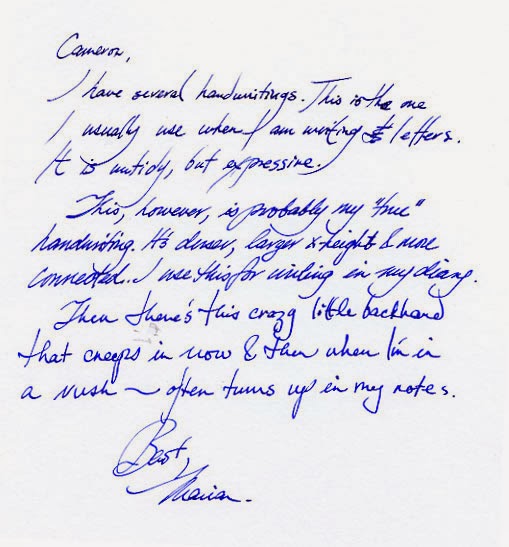 Cameron,
I have several handwritings. This is the one
I usually use when I am writing letters.
It is untidy, but expressive.
This, however, is probably my "true"
handwriting. It's denser, larger x-height & more
connected.. I use this for writing in my diary.
Then there's this crazy little backhand
that creeps in now & then when I'm in
a rush ~ often turns up in my notes.
Best,
Marian.